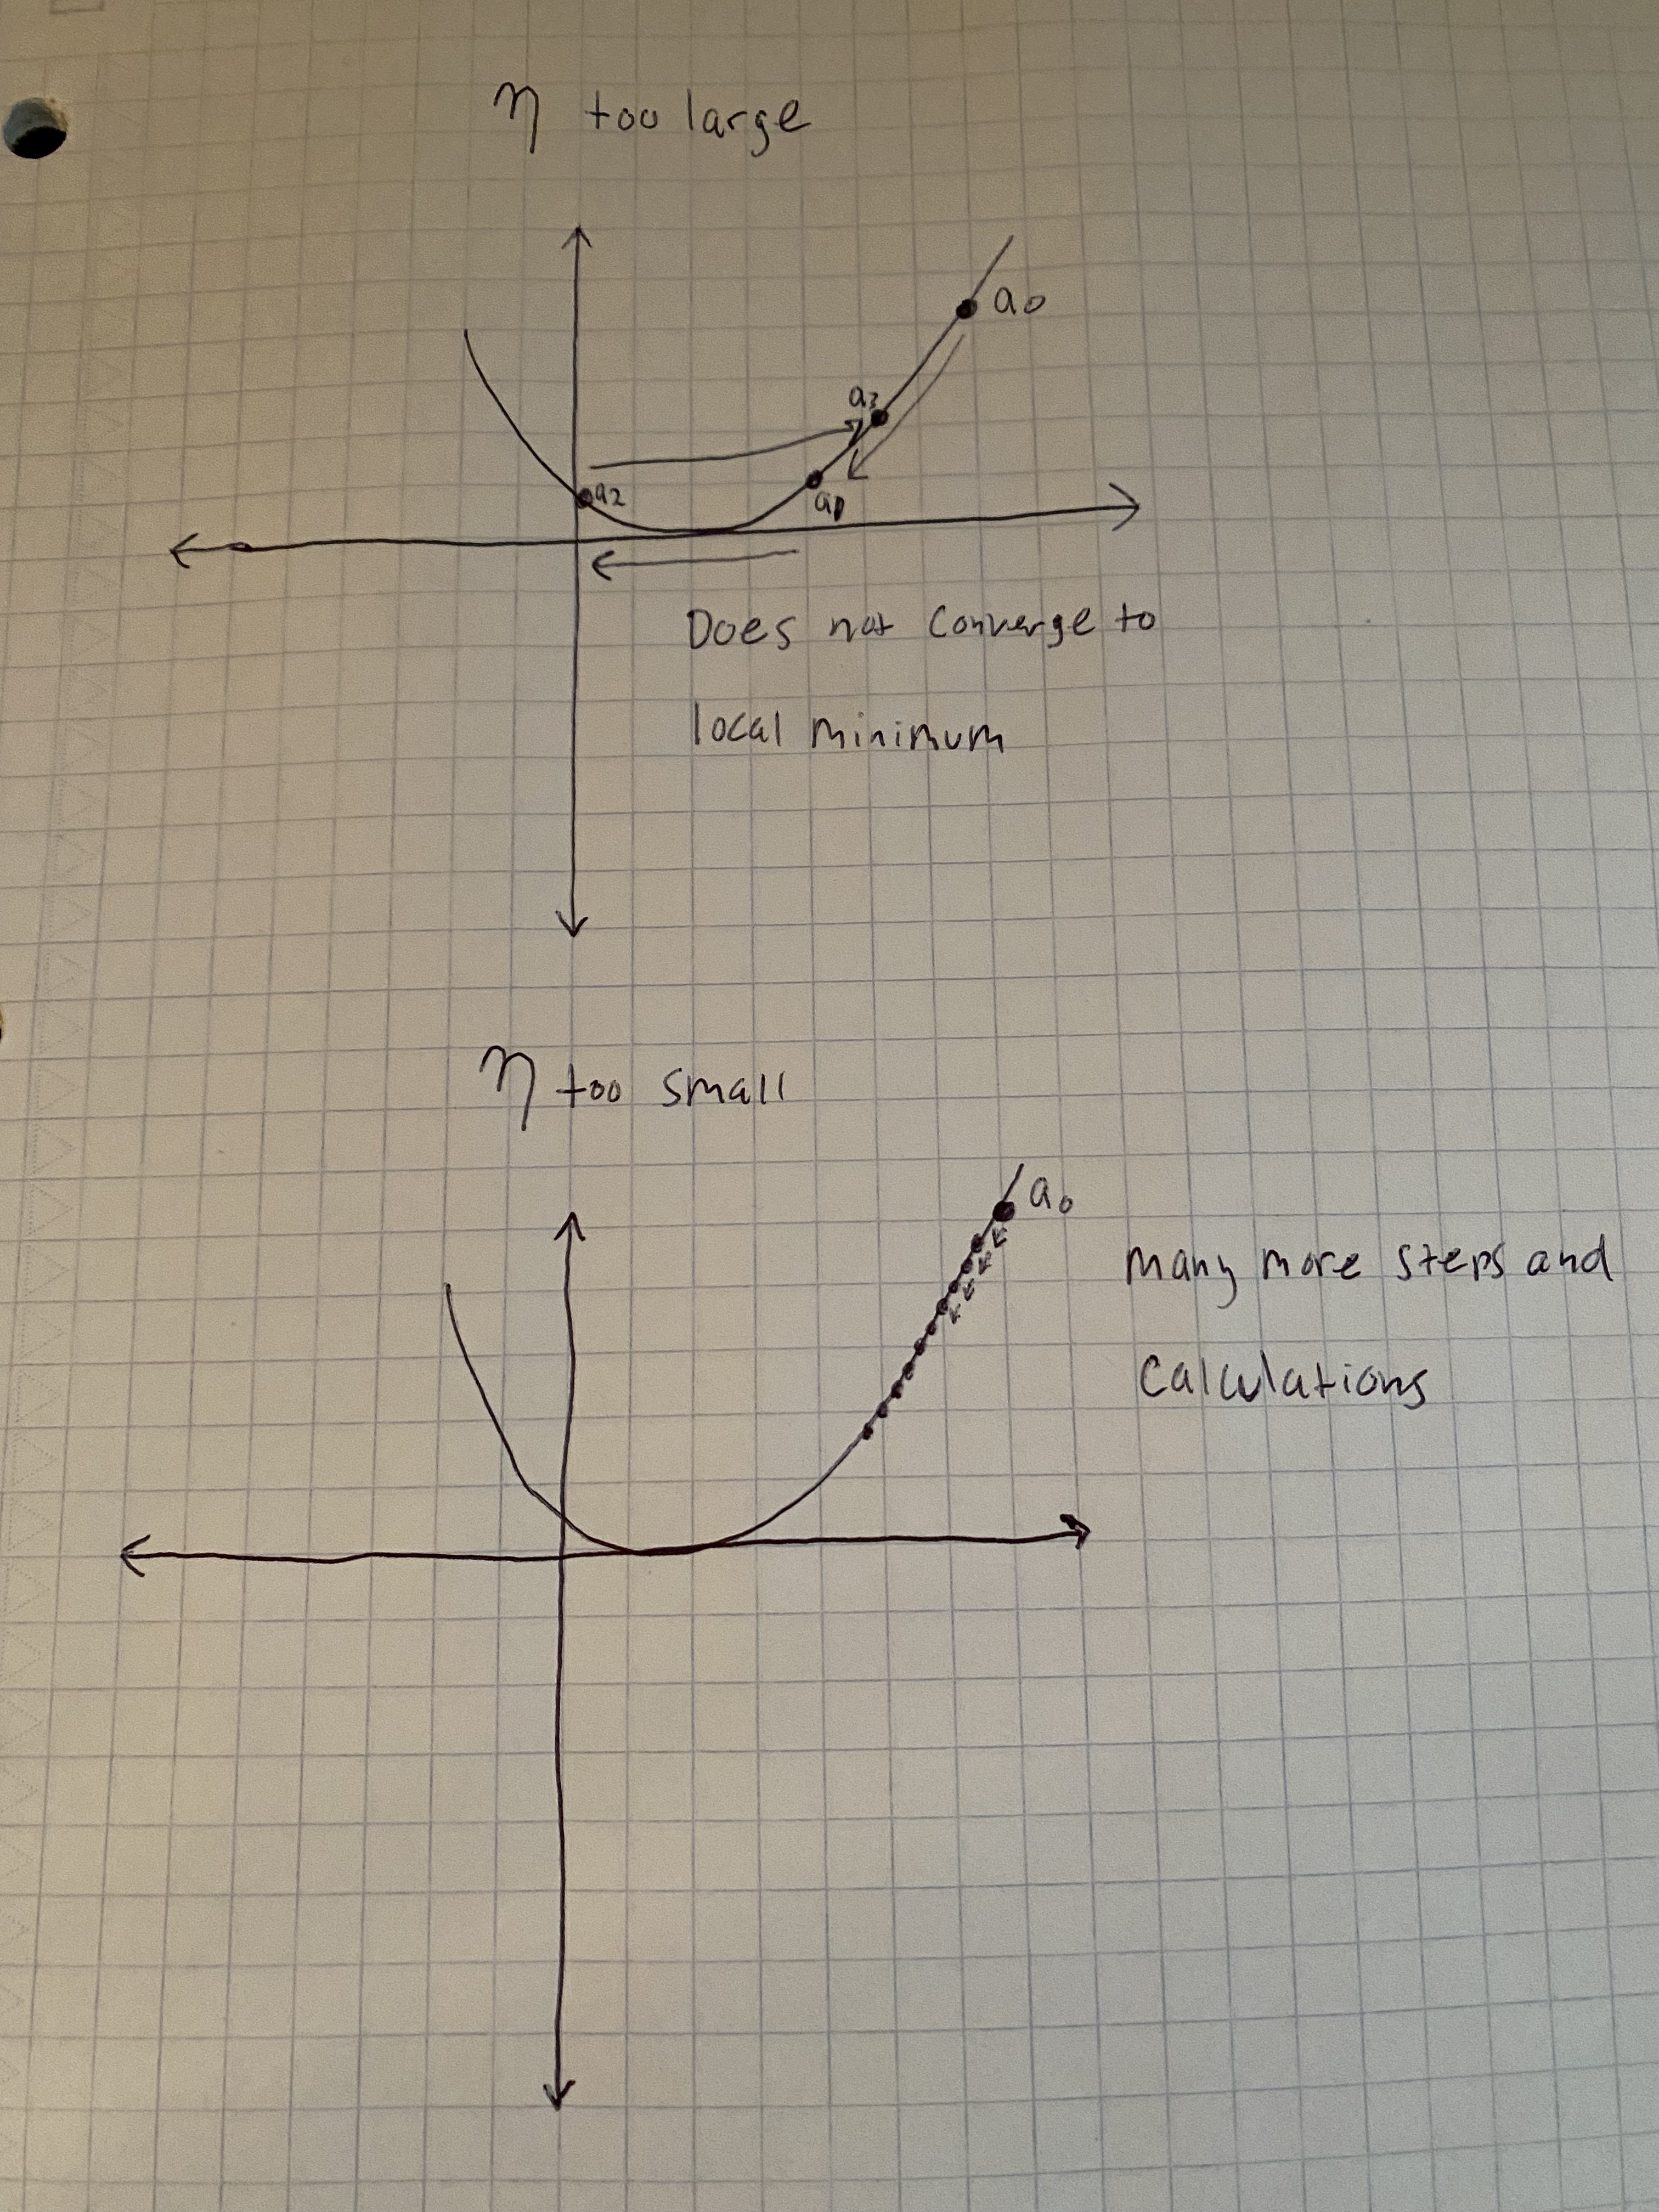 η too large
a₀
a₃
a₂
a₁
Does not converge to
local minimum
η too small
a₀
many more steps and
calculations